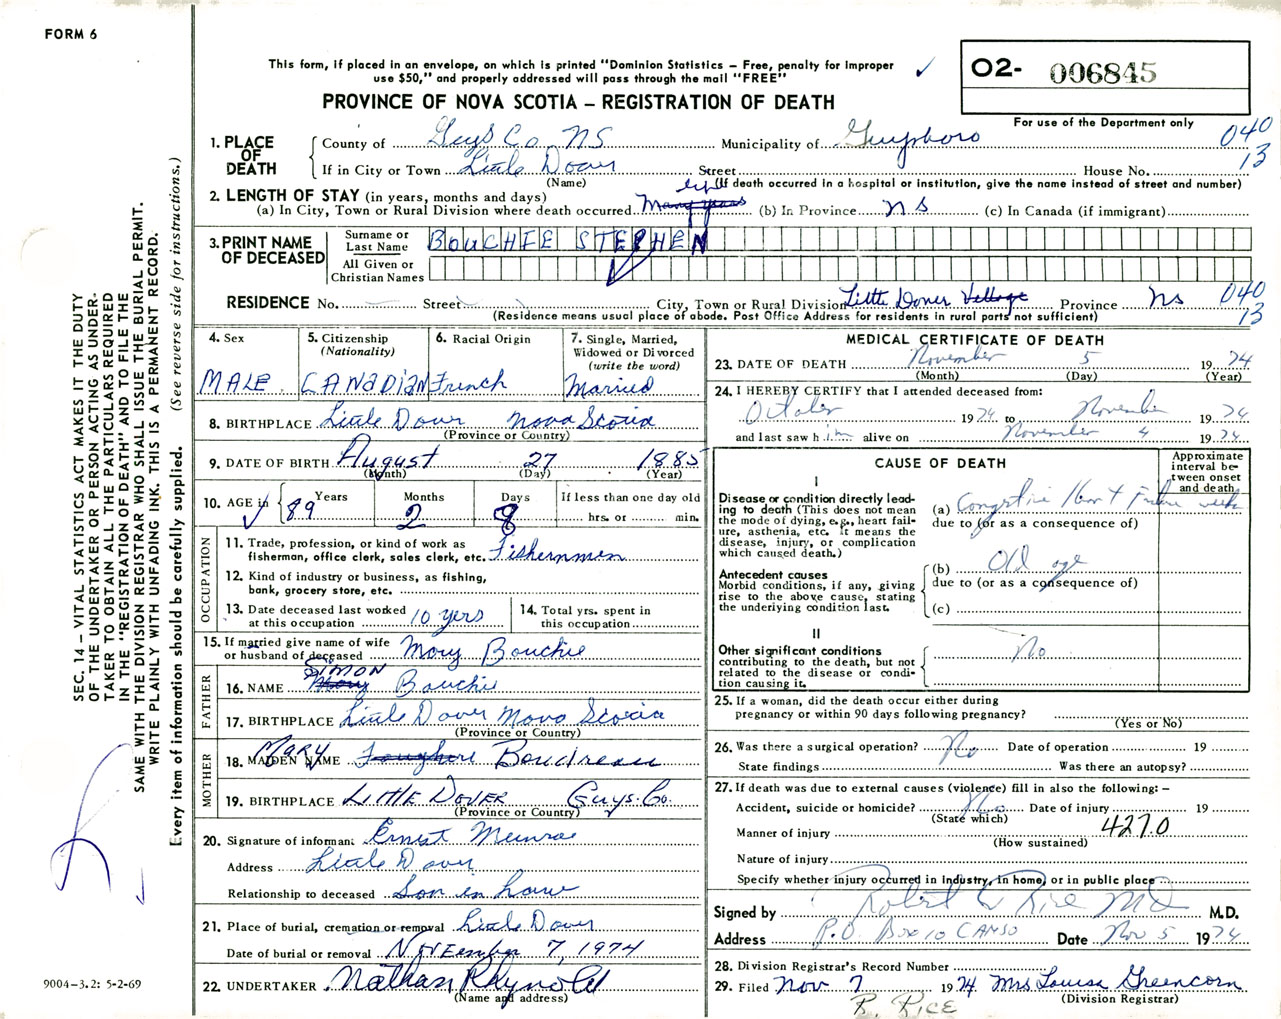 FORM 6
This form, if placed in an envelope, on which is printed "Dominion Statistics – Free, penalty for improper
use $50," and properly addressed will pass through the mail "FREE"
PROVINCE OF NOVA SCOTIA – REGISTRATION OF DEATH
O2- 006845
For use of the Department only
SEC. 14 – VITAL STATISTICS ACT MAKES IT THE DUTY
OF THE UNDERTAKER OR PERSON ACTING AS UNDER-
TAKER TO OBTAIN ALL THE PARTICULARS REQUIRED
IN THE "REGISTRATION OF DEATH" AND TO FILE THE
SAME WITH THE DIVISION REGISTRAR WHO SHALL ISSUE THE BURIAL PERMIT.
WRITE PLAINLY WITH UNFADING INK. THIS IS A PERMANENT RECORD.
Every item of information should be carefully supplied. (See reverse side for instructions.)
1. PLACE OF DEATH
County of Guys Co. NS Municipality of Guysboro 040
If in City or Town Little Dover Street House No. 13
(Name) (If death occurred in a hospital or institution, give the name instead of street and number)
2. LENGTH OF STAY (in years, months and days)
(a) In City, Town or Rural Division where death occurred Many years (b) In Province NS (c) In Canada (if immigrant)
3. PRINT NAME OF DECEASED
Surname or Last Name BOUCHIE STEPHEN
All Given or Christian Names
RESIDENCE No. Street City, Town or Rural Division Little Dover Village Province NS 040
(Residence means usual place of abode. Post Office Address for residents in rural parts not sufficient) 13
4. Sex MALE
5. Citizenship (Nationality) CANADIAN
6. Racial Origin French
7. Single, Married, Widowed or Divorced (write the word) Married
8. BIRTHPLACE Little Dover Nova Scotia
(Province or Country)
9. DATE OF BIRTH August 27 1885
(Month) (Day) (Year)
10. AGE in Years Months Days If less than one day old
89 2 8 hrs. or min.
OCCUPATION
11. Trade, profession, or kind of work as
fisherman, office clerk, sales clerk, etc. Fishernmen
12. Kind of industry or business, as fishing,
bank, grocery store, etc.
13. Date deceased last worked
at this occupation 10 yers
14. Total yrs. spent in
this occupation
15. If married give name of wife
or husband of deceased Mary Bouchie
FATHER
16. NAME Mary SIMON Bouchie
17. BIRTHPLACE Little Dover Nova Scotia
(Province or Country)
MOTHER
18. MAIDEN NAME MARY Boudreau
19. BIRTHPLACE LITTLE DOVER Guys. Co.
(Province or Country)
20. Signature of informant Ernest Munroe
Address Little Dover
Relationship to deceased Son en law
21. Place of burial, cremation or removal Little Dover
Date of burial or removal NOVEmber 7, 1974
22. UNDERTAKER Nathan Rhynold
(Name and address)
MEDICAL CERTIFICATE OF DEATH
23. DATE OF DEATH November 5 1974
(Month) (Day) (Year)
24. I HEREBY CERTIFY that I attended deceased from:
October 1974 to November 1974
and last saw him alive on November 4 1974
CAUSE OF DEATH
Approximate interval between onset and death
I
Disease or condition directly lead-
ing to death (This does not mean
the mode of dying, e.g., heart fail-
ure, asthenia, etc. It means the
disease, injury, or complication
which caused death.)
(a) Congestive Heart Failure weeks
due to (or as a consequence of)
Antecedent causes
Morbid conditions, if any, giving
rise to the above cause, stating
the underlying condition last.
(b) Old age
due to (or as a consequence of)
(c)
II
Other significant conditions
contributing to the death, but not
related to the disease or condi-
tion causing it.
No
25. If a woman, did the death occur either during
pregnancy or within 90 days following pregnancy?
(Yes or No)
26. Was there a surgical operation? No Date of operation 19
State findings Was there an autopsy?
27. If death was due to external causes (violence) fill in also the following: –
Accident, suicide or homicide? No Date of injury 19
(State which)
Manner of injury 427.0
(How sustained)
Nature of injury
Specify whether injury occurred in industry, in home, or in public place
Signed by Robert W Rice MD M.D.
Address P.O. Box 10 CANSO Date Nov 5 1974
28. Division Registrar's Record Number
29. Filed Nov 7 1974 Mrs Louisa Greencorn
(Division Registrar)
R. RICE
9004-3.2: 5-2-69